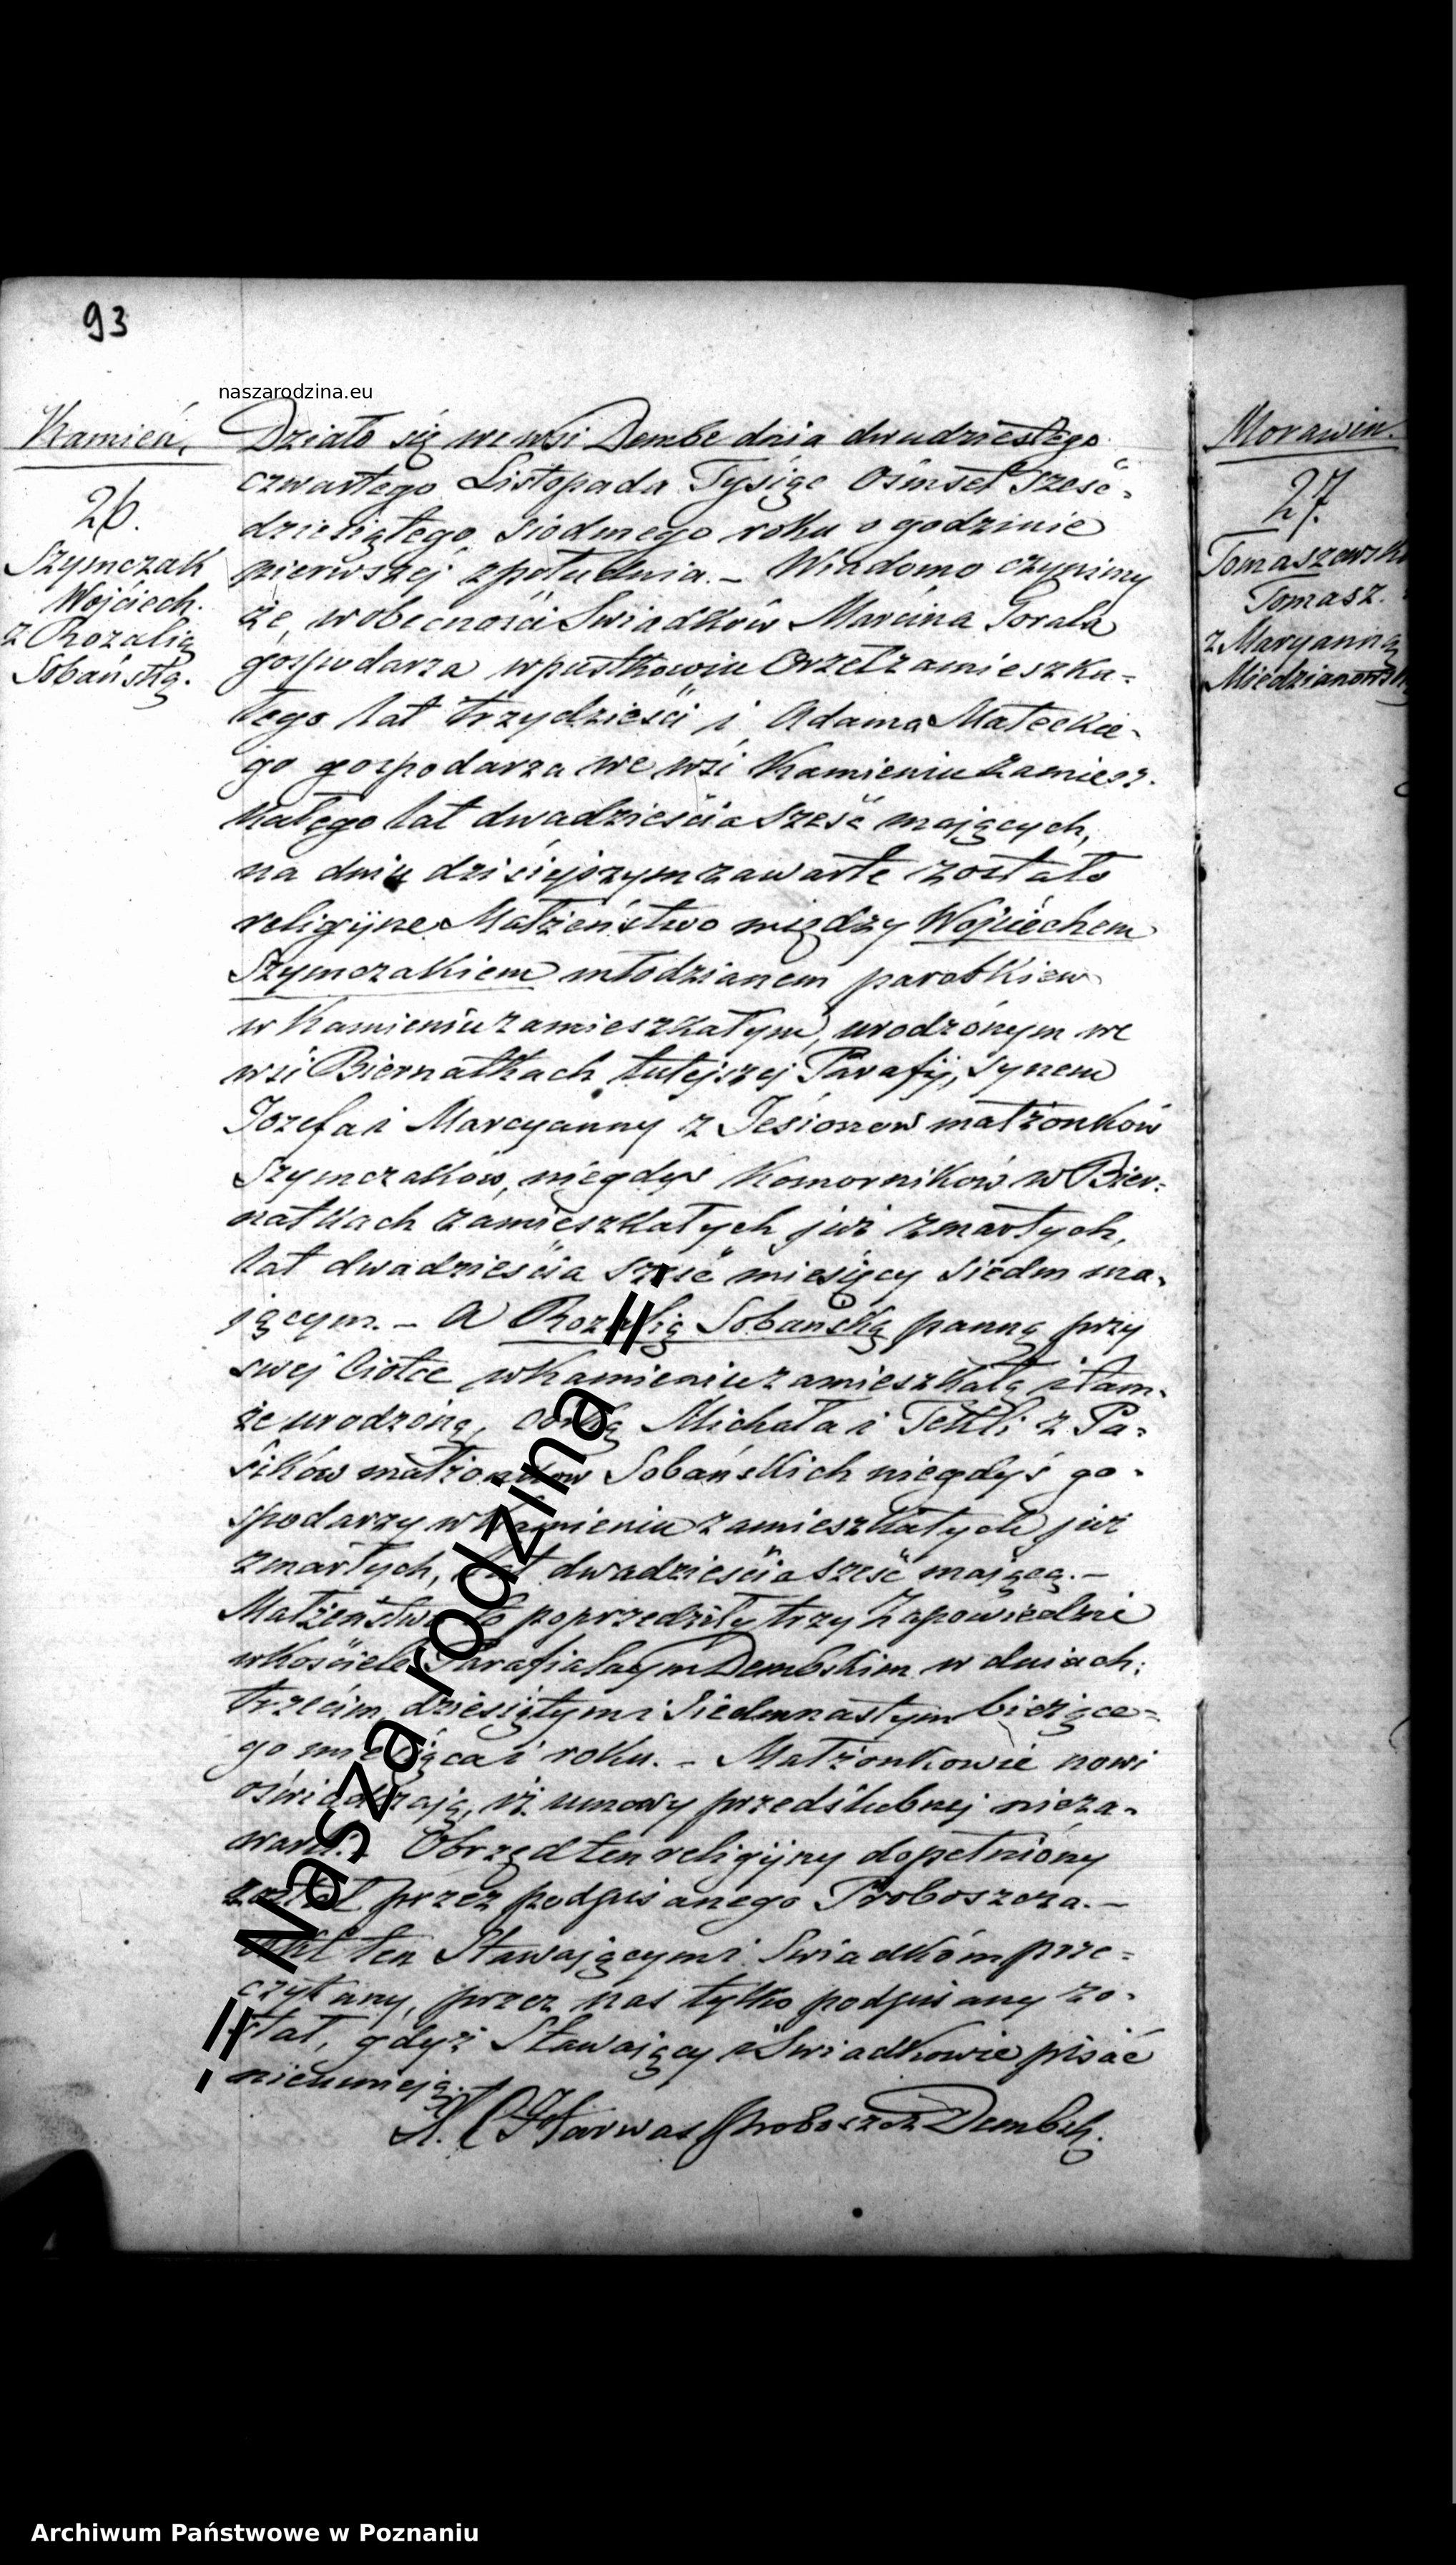 93
naszarodzina.eu
Kamień,
26.
Szymczak
Wojciech.
z Rozalią
Sobańską.
Działo się we wsi Dembe dnia dwudziestego
czwartego Listopada Tysiąc Ośmset Sześć-
dziesiątego siódmego roku o godzinie
pierwszej z południa. – Wiadomo czynimy
że, w obecności Swiadków Marcina Gorala
gospodarza w pustkowiu Orzeł zamieszka-
łego lat trzydzieści i Adama Małeckie-
go gospodarza we wsi Kamieniu zamiesz-
kałego lat dwadzieścia sześć mających,
na dniu dzisiejszym zawarte zostało
religijne Małżeństwo między Wojciechem
Szymczakiem młodzianem parobkiem
w Kamieniu zamieszkałym, urodzonym we
wsi Biernatkach tutejszej Parafij, synem
Jozefa i Marcyanny z Jesionow małżonków
Szymczaków, niegdyś Komorników w Bier-
natkach zamieszkałych już zmarłych,
lat dwadzieścia sześć miesięcy siedm ma-
jącym. – A Rozalią Sobańską panną przy
swej Ciotce w Kamieniu zamieszkałą i tam-
że urodzoną, córką Michała i Tekli z Pa-
sików małżonków Sobańskich niegdyś go-
spodarzy w Kamieniu zamieszkałych już
zmarłych, lat dwadzieścia sześć mającą. –
Małżeństwo to poprzedziły trzy Zapowiedzie
w Kościele Parafialnym Dembskim w dniach:
trzecim dziesiątym i Siedmnastym bieżące-
go miesiąca i roku. – Małżonkowie nowi
oświadczają, iż umowy przedślubnej nieza-
warli. Obrzęd ten religijny dopełniony
został przez podpisanego Proboszcza. –
Akt ten Stawającym i Swiadkóm prze-
czytany, przez nas tylko podpisany zo-
stał, gdyż Stawający i Swiadkowie pisać
nieumieją.
Proboszcz Dembsk.
Morawin.
27.
Tomaszewski
Tomasz.
z Maryanną
Miedzianowsk
-= Nasza rodzina =-
Archiwum Państwowe w Poznaniu